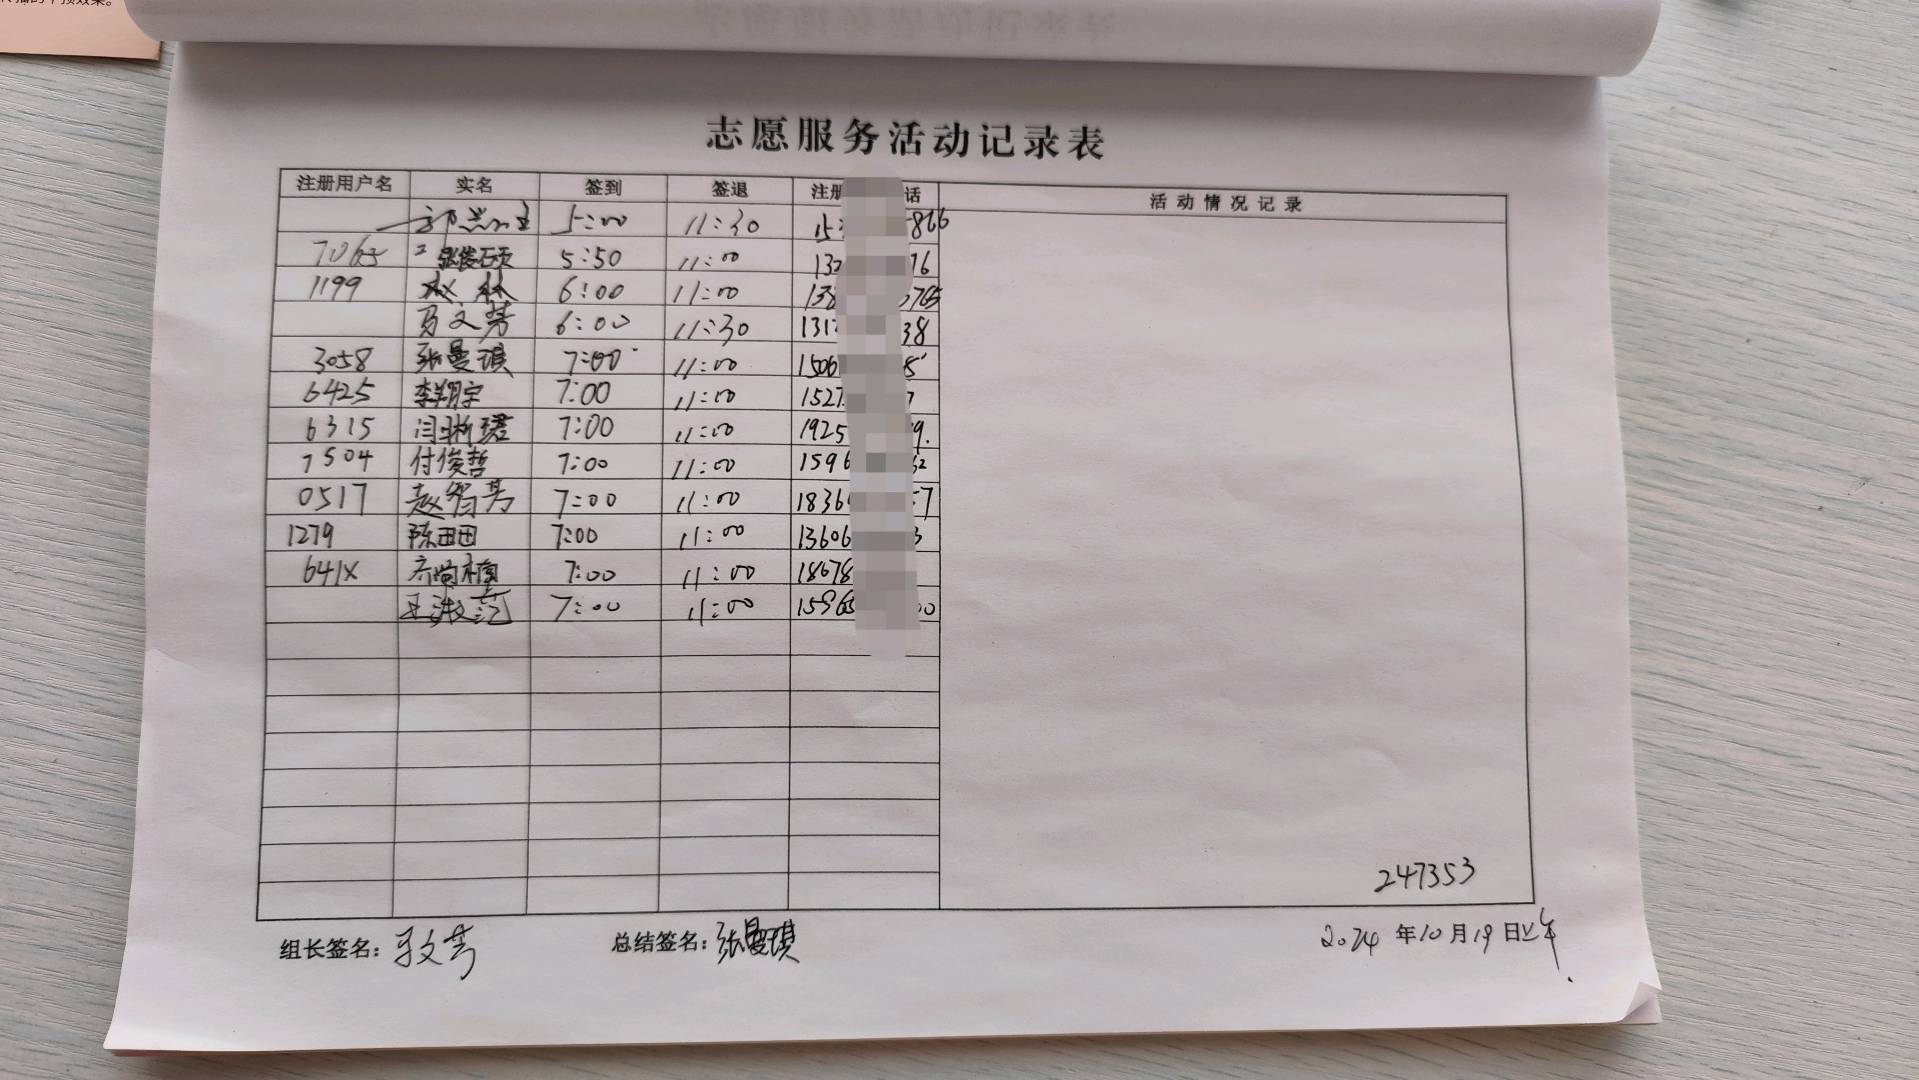 志愿服务活动记录表
注册用户名 实名 签到 签退 注册 话 活动情况记录
5:00 11:30 15 866
7065 张俊硕 5:50 11:00 132 76
1199 赵林 6:00 11:00 138 3765
马文芳 6:00 11:30 131 38
3058 张曼琪 7:00 11:00 1506 8
6425 李翔宇 7:00 11:00 1527 7
6315 闫晰珺 7:00 11:00 1925 9.
7504 付俊哲 7:00 11:00 1596 32
0517 赵智芳 7:00 11:00 1836 57
1279 陈田田 7:00 11:00 13606 3
641X 齐尚楠 7:00 11:00 18678
王淑范 7:00 11:00 15965 00
247353
组长签名: 马文芳 总结签名: 张曼琪 2024 年10月19日上午